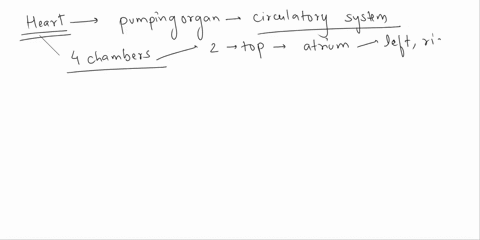 Heart → pumping organ → circulatory system
4 chambers 2 → top → atrium left, ri